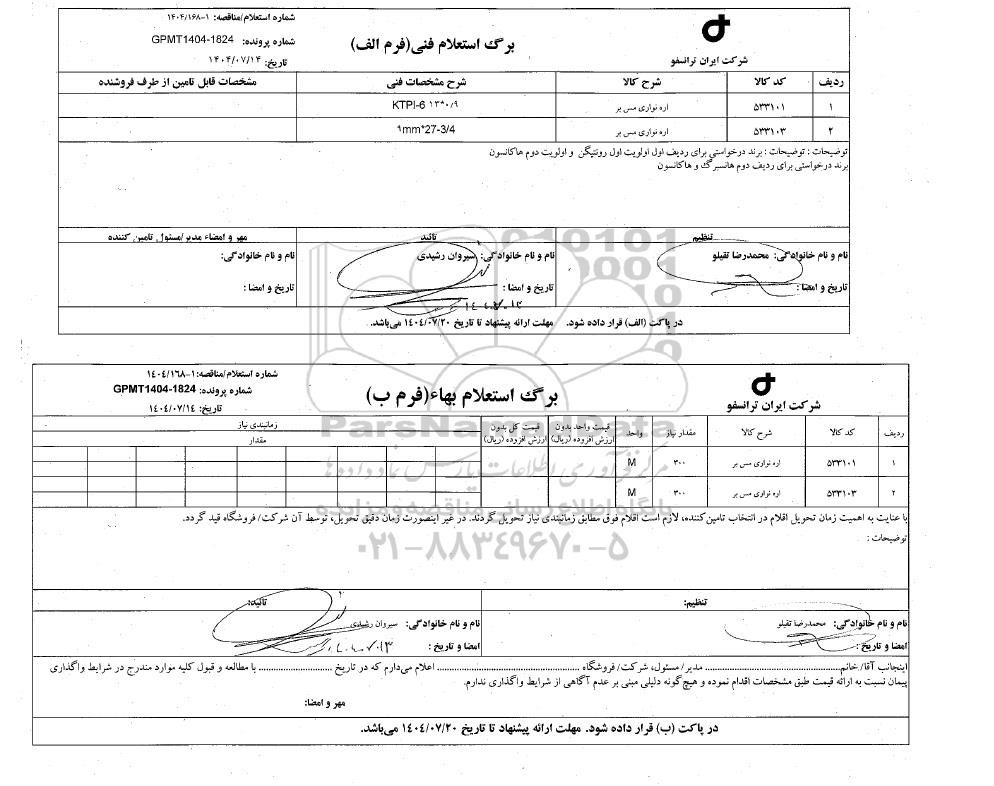 شماره استعلام/مناقصه: ۱۴۰۴/۱۶۸-۱
برگ استعلام فنی(فرم الف)
شماره پرونده: GPMT1404-1824
شرکت ایران ترانسفو
تاریخ: ۱۴۰۴/۰۷/۱۴
ردیف کد کالا شرح کالا شرح مشخصات فنی مشخصات قابل تامین از طرف فروشنده
۱ ۵۳۳۱۰۱ اره نواری مس بر KTPI-6 ۱۳*۰/۹
۲ ۵۳۳۱۰۳ اره نواری مس بر ۹mm*27-3/4
توضیحات : توضیحات : برند درخواستی برای ردیف اول اولویت اول رونتیگن و اولویت دوم هاکانسون
برند درخواستی برای ردیف دوم هانسبرگ و هاکانسون
تنظیم تائید مهر و امضاء مدیر/مسئول تامین کننده
نام و نام خانوادگی: محمدرضا تقیلو نام و نام خانوادگی: سیروان رشیدی نام و نام خانوادگی:
تاریخ و امضا : تاریخ و امضا : تاریخ و امضا :
در پاکت (الف) قرار داده شود. مهلت ارائه پیشنهاد تا تاریخ ۱۴۰۴/۰۷/۲۰ می‌باشد.
شماره استعلام/مناقصه: ۱۴۰۴/۱۶۸-۱
برگ استعلام بهاء(فرم ب)
شماره پرونده: GPMT1404-1824
شرکت ایران ترانسفو
تاریخ: ۱۴۰۴/۰۷/۱۴
ردیف کد کالا شرح کالا مقدار نیاز واحد قیمت واحد بدون ارزش افزوده (ریال) قیمت کل بدون ارزش افزوده (ریال) زمانبندی نیاز
مقدار
۱ ۵۳۳۱۰۱ اره نواری مس بر ۳۰۰ M
۲ ۵۳۳۱۰۳ اره نواری مس بر ۳۰۰ M
ParsNamadData
مرکز فرآوری اطلاعات پارس نماد داده ها
پایگاه اطلاع رسانی مناقصه و مزایده
۰۲۱-۸۸۳۴۹۶۷۰-۵
با عنایت به اهمیت زمان تحویل اقلام در انتخاب تامین‌کننده، لازم است اقلام فوق مطابق زمانبندی نیاز تحویل گردند. در غیر اینصورت زمان دقیق تحویل، توسط آن شرکت/ فروشگاه قید گردد.
توضیحات :
تنظیم: تائید:
نام و نام خانوادگی: محمدرضا تقیلو نام و نام خانوادگی: سیروان رشیدی
امضا و تاریخ : امضا و تاریخ :
اینجانب آقا/ خانم........ مدیر/ مسئول، شرکت/ فروشگاه ........ اعلام می‌دارم که در تاریخ ........ با مطالعه و قبول کلیه موارد مندرج در شرایط واگذاری
پیمان نسبت به ارائه قیمت طبق مشخصات اقدام نموده و هیچ گونه دلیلی مبنی بر عدم آگاهی از شرایط واگذاری ندارم.
مهر و امضا:
در پاکت (ب) قرار داده شود. مهلت ارائه پیشنهاد تا تاریخ ۱۴۰۴/۰۷/۲۰ می‌باشد.